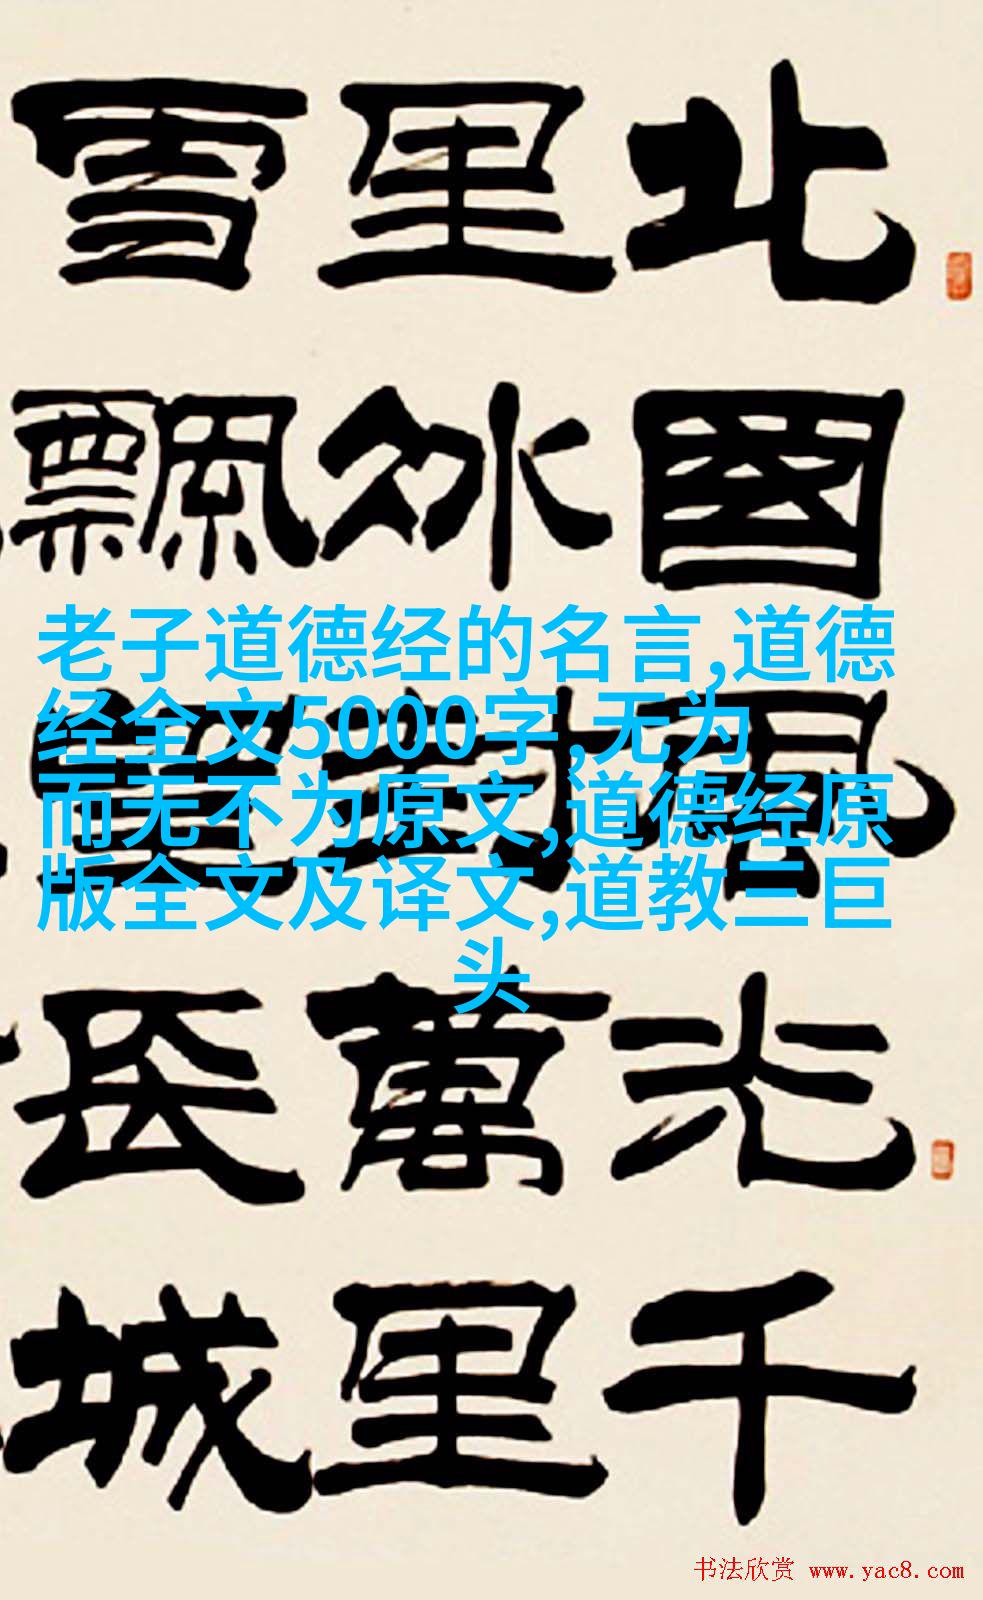 北國風光千
里冰封萬里
雪飄望長城
老子道德经的名言,道德
经全文5000字,无为
而无不为原文,道德经原
版全文及译文,道教三巨
头
书法欣赏 www.yac8.com